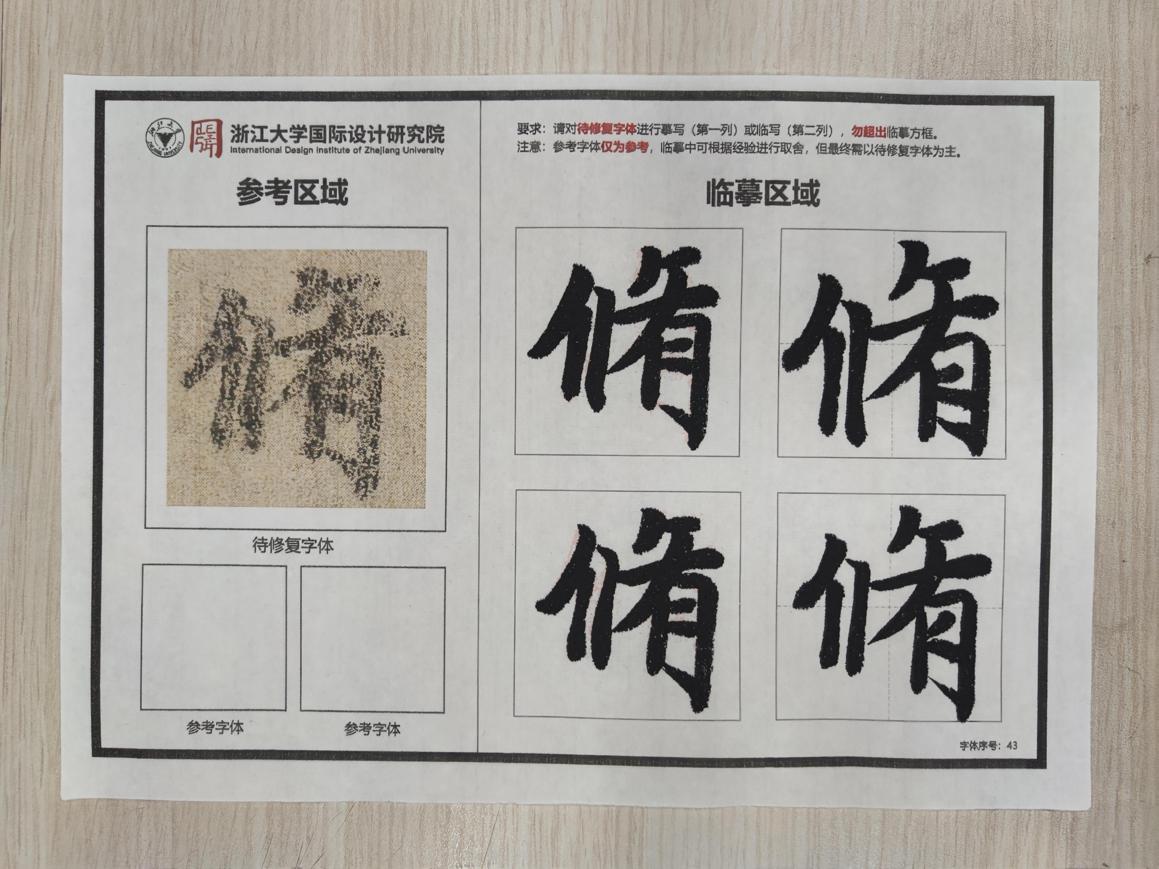 浙江大学国际设计研究院
International Design Institute of Zhejiang University
参考区域
待修复字体
参考字体
参考字体
要求：请对待修复字体进行摹写（第一列）或临写（第二列），勿超出临摹方框。
注意：参考字体仅为参考，临摹中可根据经验进行取舍，但最终需以待修复字体为主。
临摹区域
脩 脩
脩 脩
字体序号：43